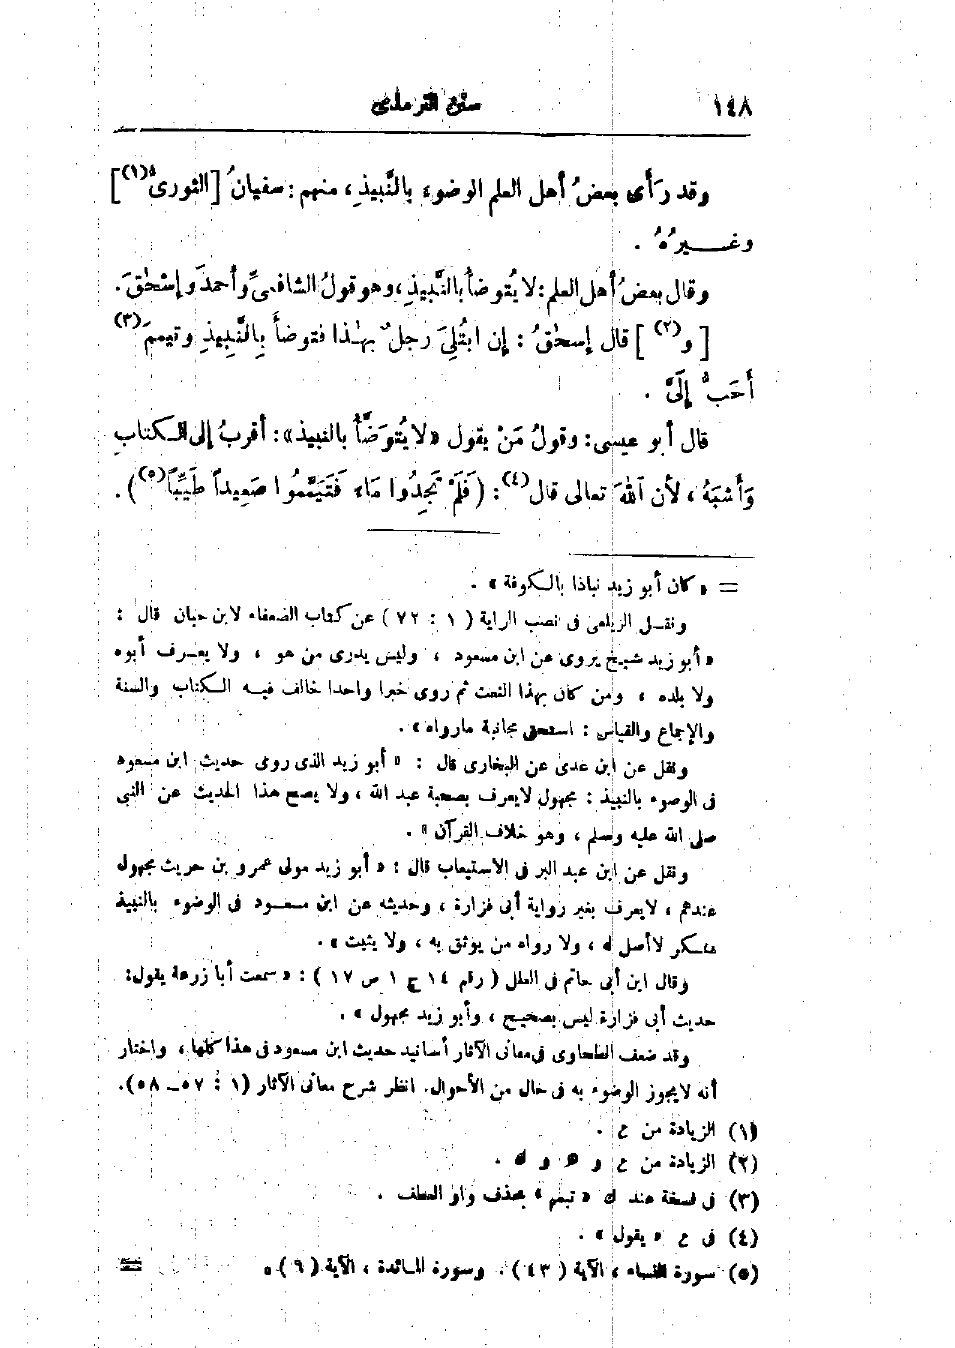 ١٤٨ سنن الترمذى
وقد رَأَى بعضُ أهل العلم الوضوء بالنَّبيذِ ، منهم : سفيانُ [ الثورىُّ(١) ]
وغـــيرُهُ .
وقال بعضُ أهل العلم : لا يُتوضأُ بالنَّبيذِ ، وهو قولُ الشافعىِّ وأحمدَ وإسْحٰقَ .
[ و(٢) ] قال إسحٰقُ : إن ابتُلِىَ رجلٌ بهٰذا فتوضأَ بِالنَّبِيذِ وتيممَ(٣)
أَحَبُّ إلَىَّ .
قال أبو عيسى : وقولُ مَنْ يقول « لا يُتَوَضَّأُ بالنبيذ » : أقربُ إلى الـكتابِ
وَأَشبَهُ ، لأن اللهَ تعالى قال(٤) : ( فَلَمْ تَجِدُوا مَاء فَتَيَمَّمُوا صَعِيداً طَيِّباً(٥) ) .
= « كان أبو زيد نباذا بالـكوفة » .
ونقـل الزيلعى فى نصب الراية ( ١ : ٧٢ ) عن كتاب الضعفاء لابن حبان قال :
« أبو زيد شيخ يروى عن ابن مسعود ، وليس يدرى من هو ، ولا يعـرف أبوه
ولا بلده ، ومن كان بهذا النعت ثم روى خبرا واحدا خالف فيـه الـكتاب والسنة
والإجماع والقياس : استحق مجانبة مارواه » .
ونقل عن ابن عدى عن البخارى قال : « أبو زيد الذى روى حديث ابن مسعود
فى الوضوء بالنبيذ : مجهول لايعرف بصحبة عبد الله ، ولا يصح هذا الحديث عن النبى
صلى الله عليه وسلم ، وهو خلاف القرآن » .
ونقل عن ابن عبد البر فى الاستيعاب قال : « أبو زيد مولى عمرو بن حريث مجهول
عندهم ، لايعرف بغير رواية أبى فزارة ، وحديثه عن ابن مسعـود فى الوضوء بالنبيذ
منـكر لا أصل له ، ولا رواه من يوثق به ، ولا يثبت » .
وقال ابن أبى حاتم فى العلل ( رقم ١٤ ج ١ ص ١٧ ) : « سمعت أبا زرعة يقول :
حديث أبى فزارة ليس بصحيح ، وأبو زيد مجهول » .
وقد ضعف الطحاوى فى معانى الآثار أسانيد حديث ابن مسعود فى هذا كلها ، واختار
أنه لايجوز الوضوء به فى حال من الأحوال . انظر شرح معانى الآثار ( ١ : ٥٧ ـ ٥٨ ) .
(١) الزيادة من ع .
(٢) الزيادة من ع و ھ و ك .
(٣) فى نسخة عند ك « تيمم » بحذف واو العطف .
(٤) فى ع « يقول » .
(٥) سورة النساء ، الآية ( ٤٣ ) . وسورة المـائدة ، الآية ( ٦ ) . =